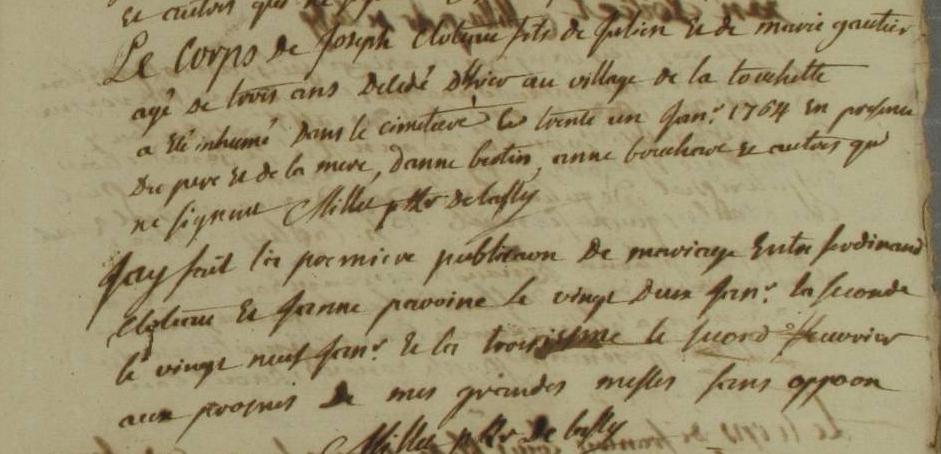 et autres qui ne
Le Corps de Joseph Cloteau fils de Julien Et de marie gautier
agé de trois ans Decedé D'hier au village de la touchette
a Eté inhumé Dans le cimetiere le trente un Janr. 1764 En presence
Du pere Et de la mere, danne bertin, anne bouchard Et autres qui
ne signent Millet ptre de
Jay fait la premiere publicaon De mariage Entre ferdinand
Cloteau Et Janne pavoine le vingt Deux Janr. la seconde
le vingt neuf Janr. Et la troisiesme le second feuvrier
aux prosnes De mes grandes messes sans oppoon
Millet ptre de